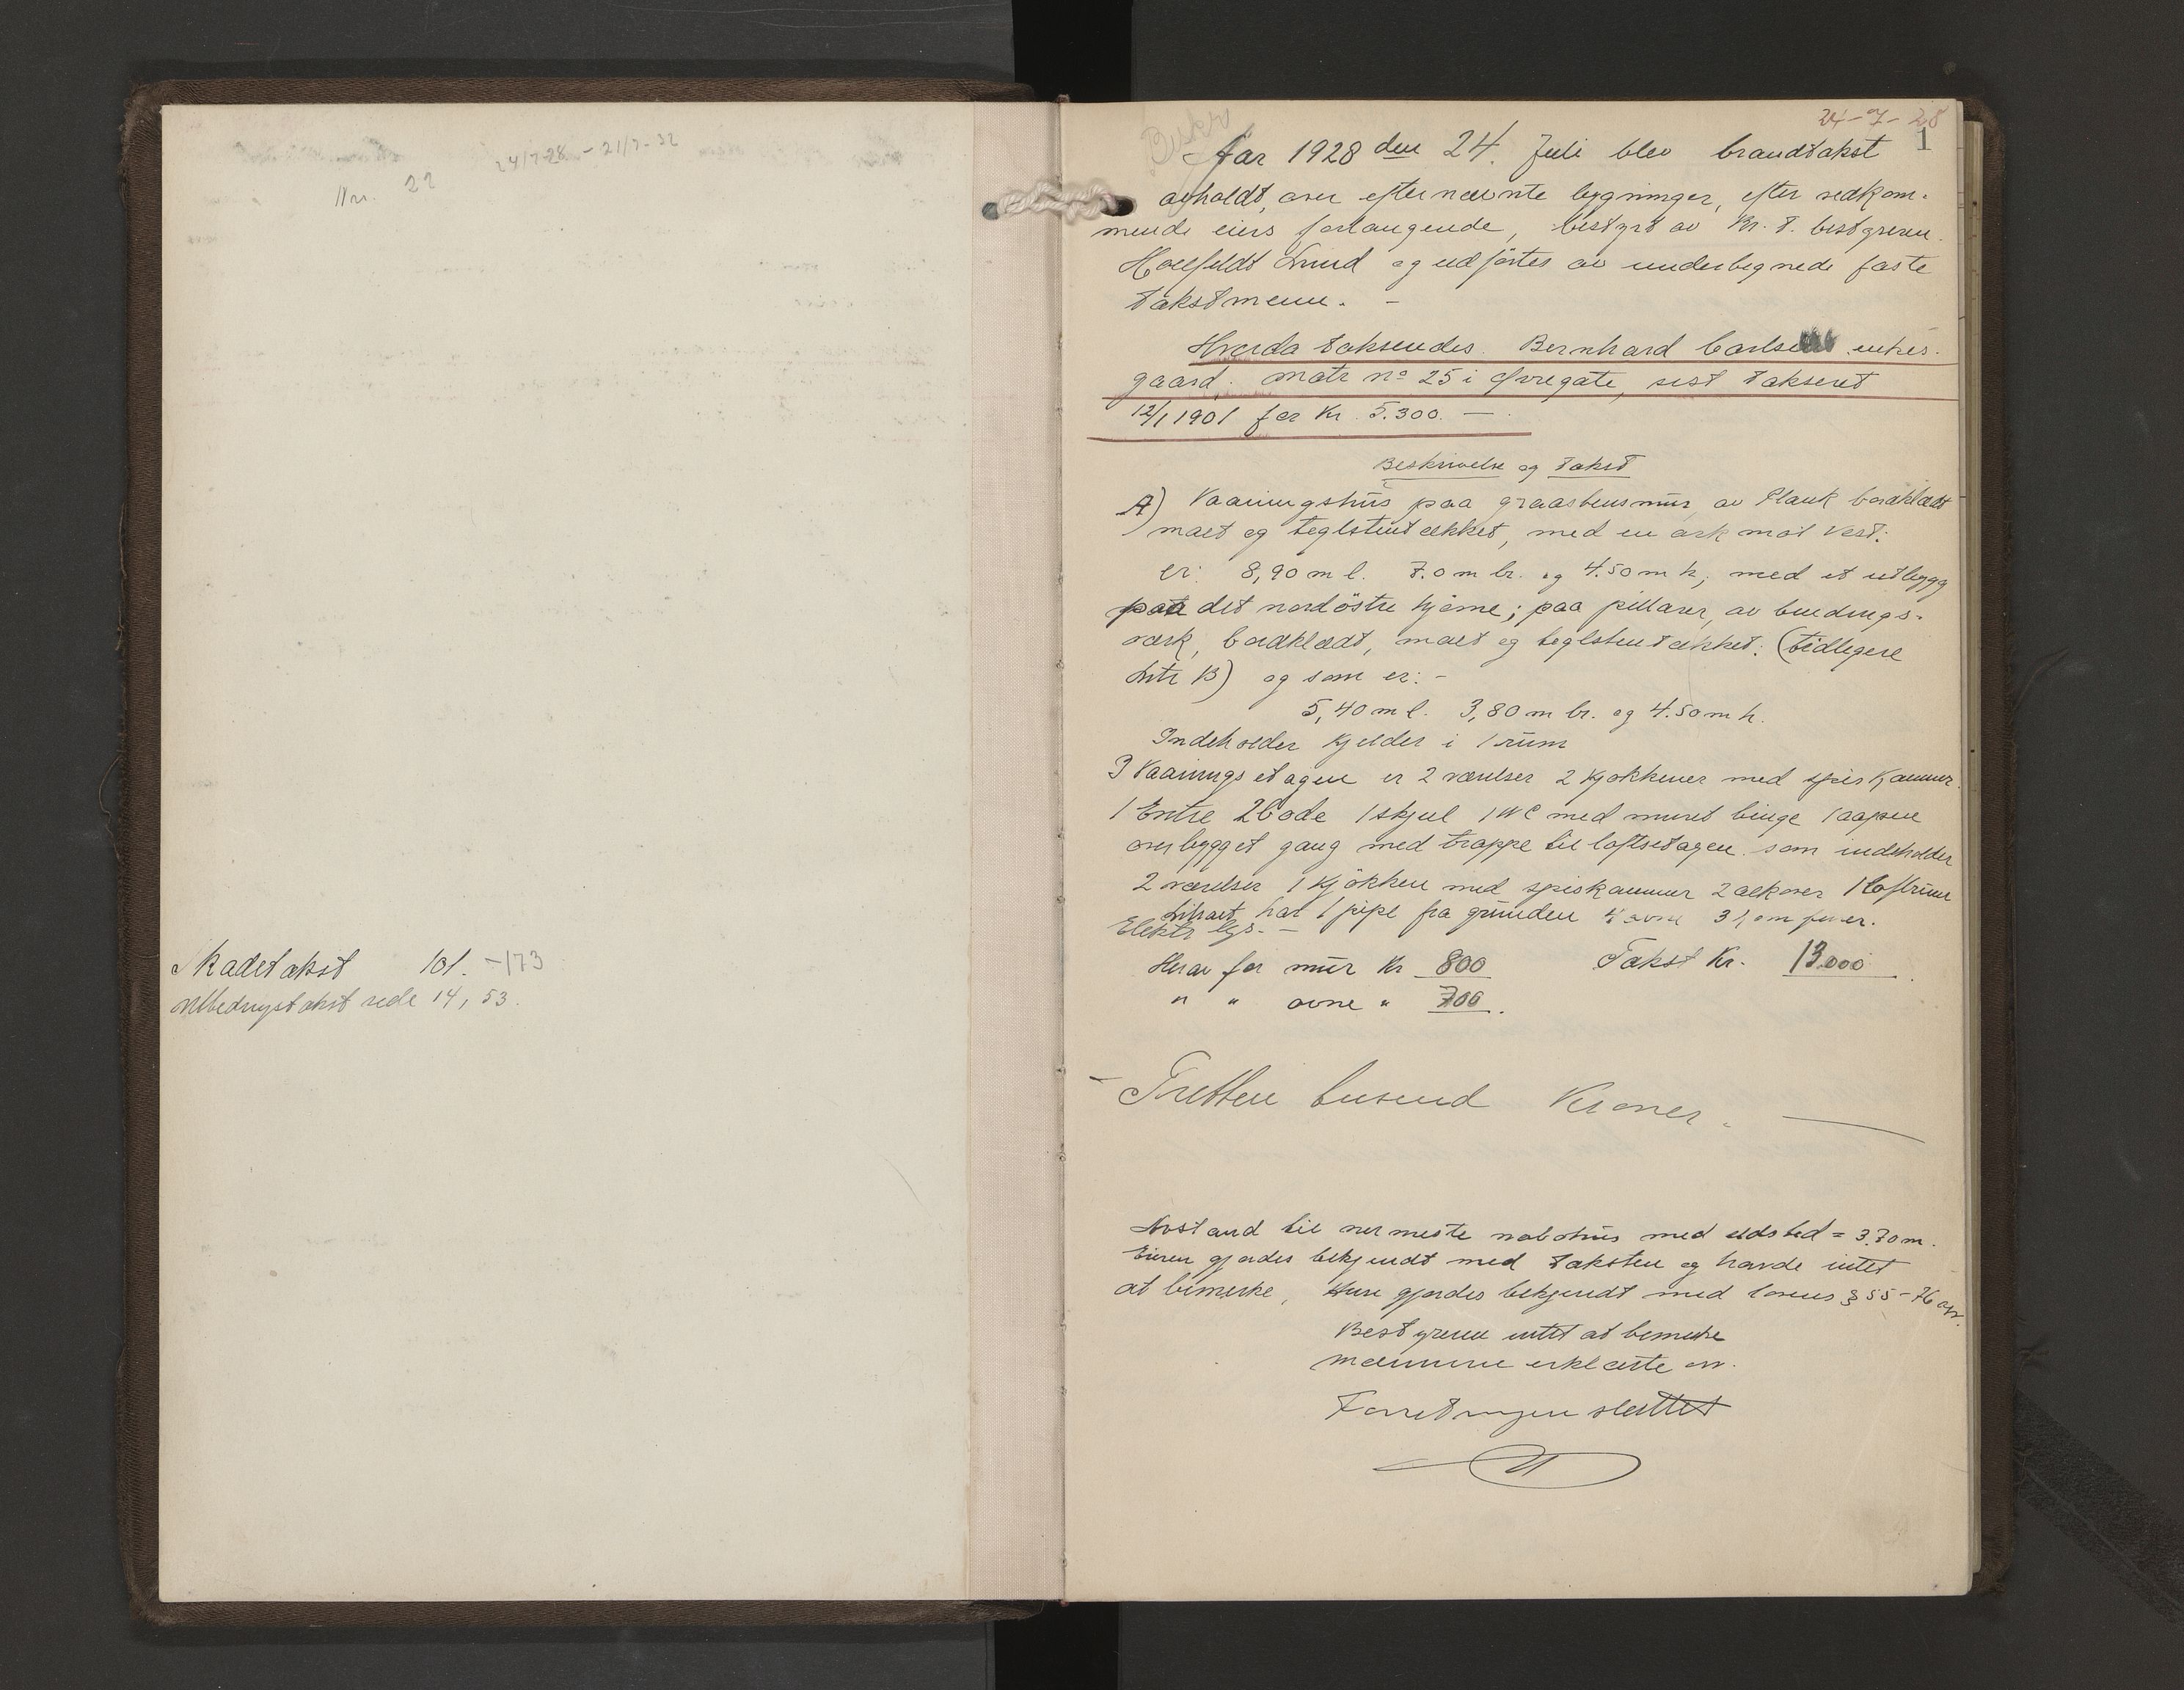 24/7-28 - 21/7-32
Nr. 22
Skadetakst 101. -173
Nedbedragstakst side 14, 53.
24-7-28
1
Beskr
Aar 1928 den 24. Juli blev brandtakst
avholdt, over efternævnte bygninger, efter vedkom-
mende eiers forlangende, bestyrt av Kr. T. bestyreren
Hollfeldt Lund og utførtes av undertegnede faste
takstmenn. -
Hvorda takseredes Bernhard Carlsens enkes
gaard. matr no 25 i Øvregate, sist takseret
12/1 1901 for Kr 5.300. —
Beskrivelse og takst
A) Vaaningshus paa graastensmur, av Plank bordklædt
malt og teglstentækket, med en ark mot Vest.
er: 8,90 m l. 7.0 m br. og 4.50 m h, med et utbygg
paa det nordöstre hjörne; paa pillarer, av bindings-
værk, bordklædt, malt og teglstentækket. (tidligere
Litr B) og som er: -
5,40 m l. 3,80 m br. og 4.50 m h.
Indeholder Kjelder i 1 rum
I Vaaningsetagen er 2 værelser 2 Kjøkkener med spiskammer
1 Entre 2 Bode 1 skjul 1 WC med muret binge 1 aapen
overbygget gang med trappe til loftsetagen som indeholder
2 værelser 1 Kjökken med spiskammer 2 alkover 1 loftrum
Litraet har 1 pipe fra grunden 4 ovne 3 komfurer.
Elektr lys. -
Herav for mur Kr 800 Takst Kr. 13.000
" " ovne " 700.
- Tretten tusend Kroner. —
Avstand til nermeste nabohus med ildsted = 3.70 m.
Eieren gjordes bekjendt med taksten og havde intet
at bemerke, Hun gjordes bekjendt med lovens § 55-76 ovr.
Bestyreren intet at bemerke
Mænnene erklærte ov.
Forretningen sluttet